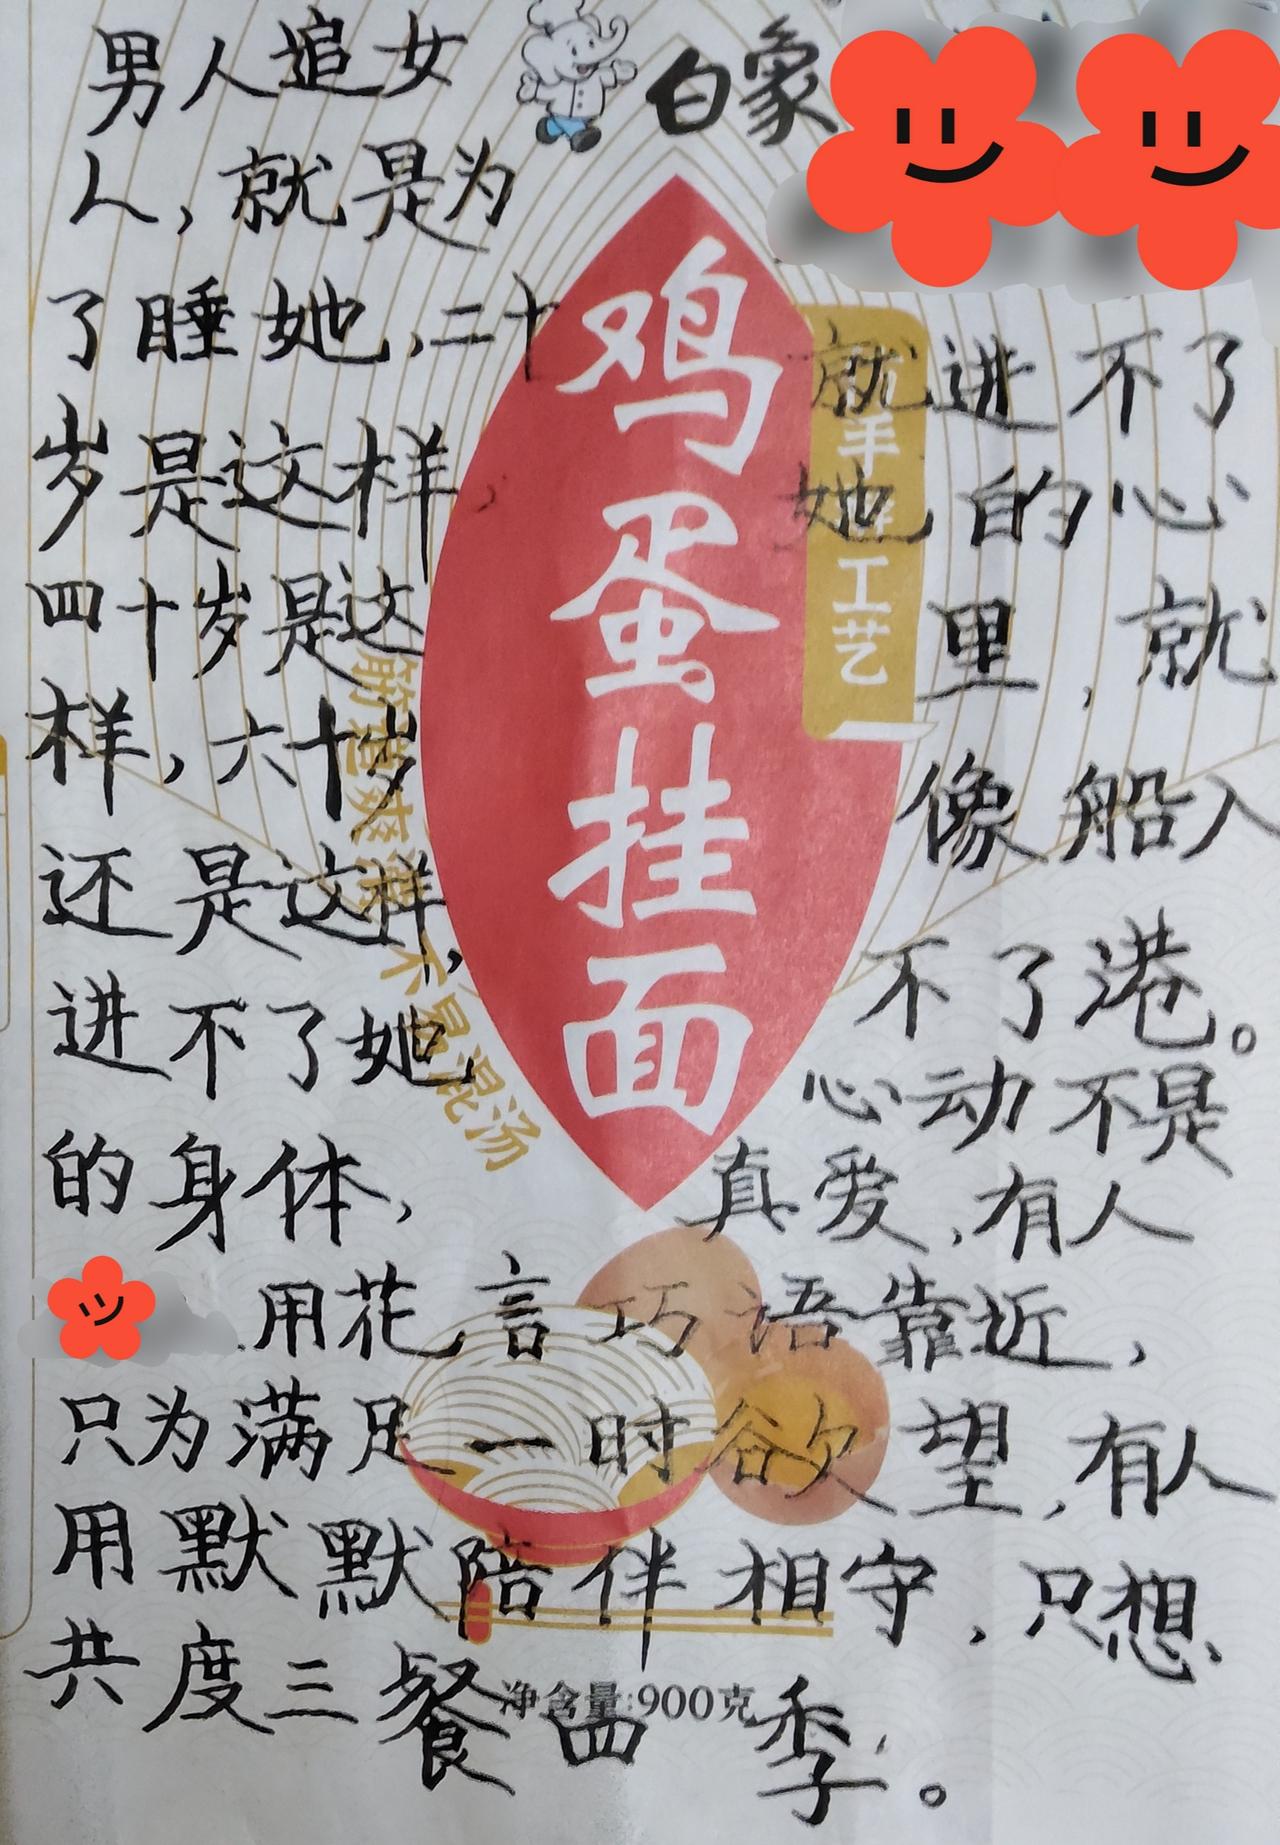 白象
鸡蛋挂面
手擀工艺
筋道爽滑 不易混汤
净含量:900克
男人追女
人,就是为
了睡她,二十
岁是这样,
四十岁是这
样,六十岁
还是这样,
进不了她
的身体,
就进不了
她的心
里,就
像船入
不了港。
心动不是
真爱,有人
用花言巧语靠近,
只为满足一时欲望,有人
用默默陪伴相守,只想
共度三餐四季。